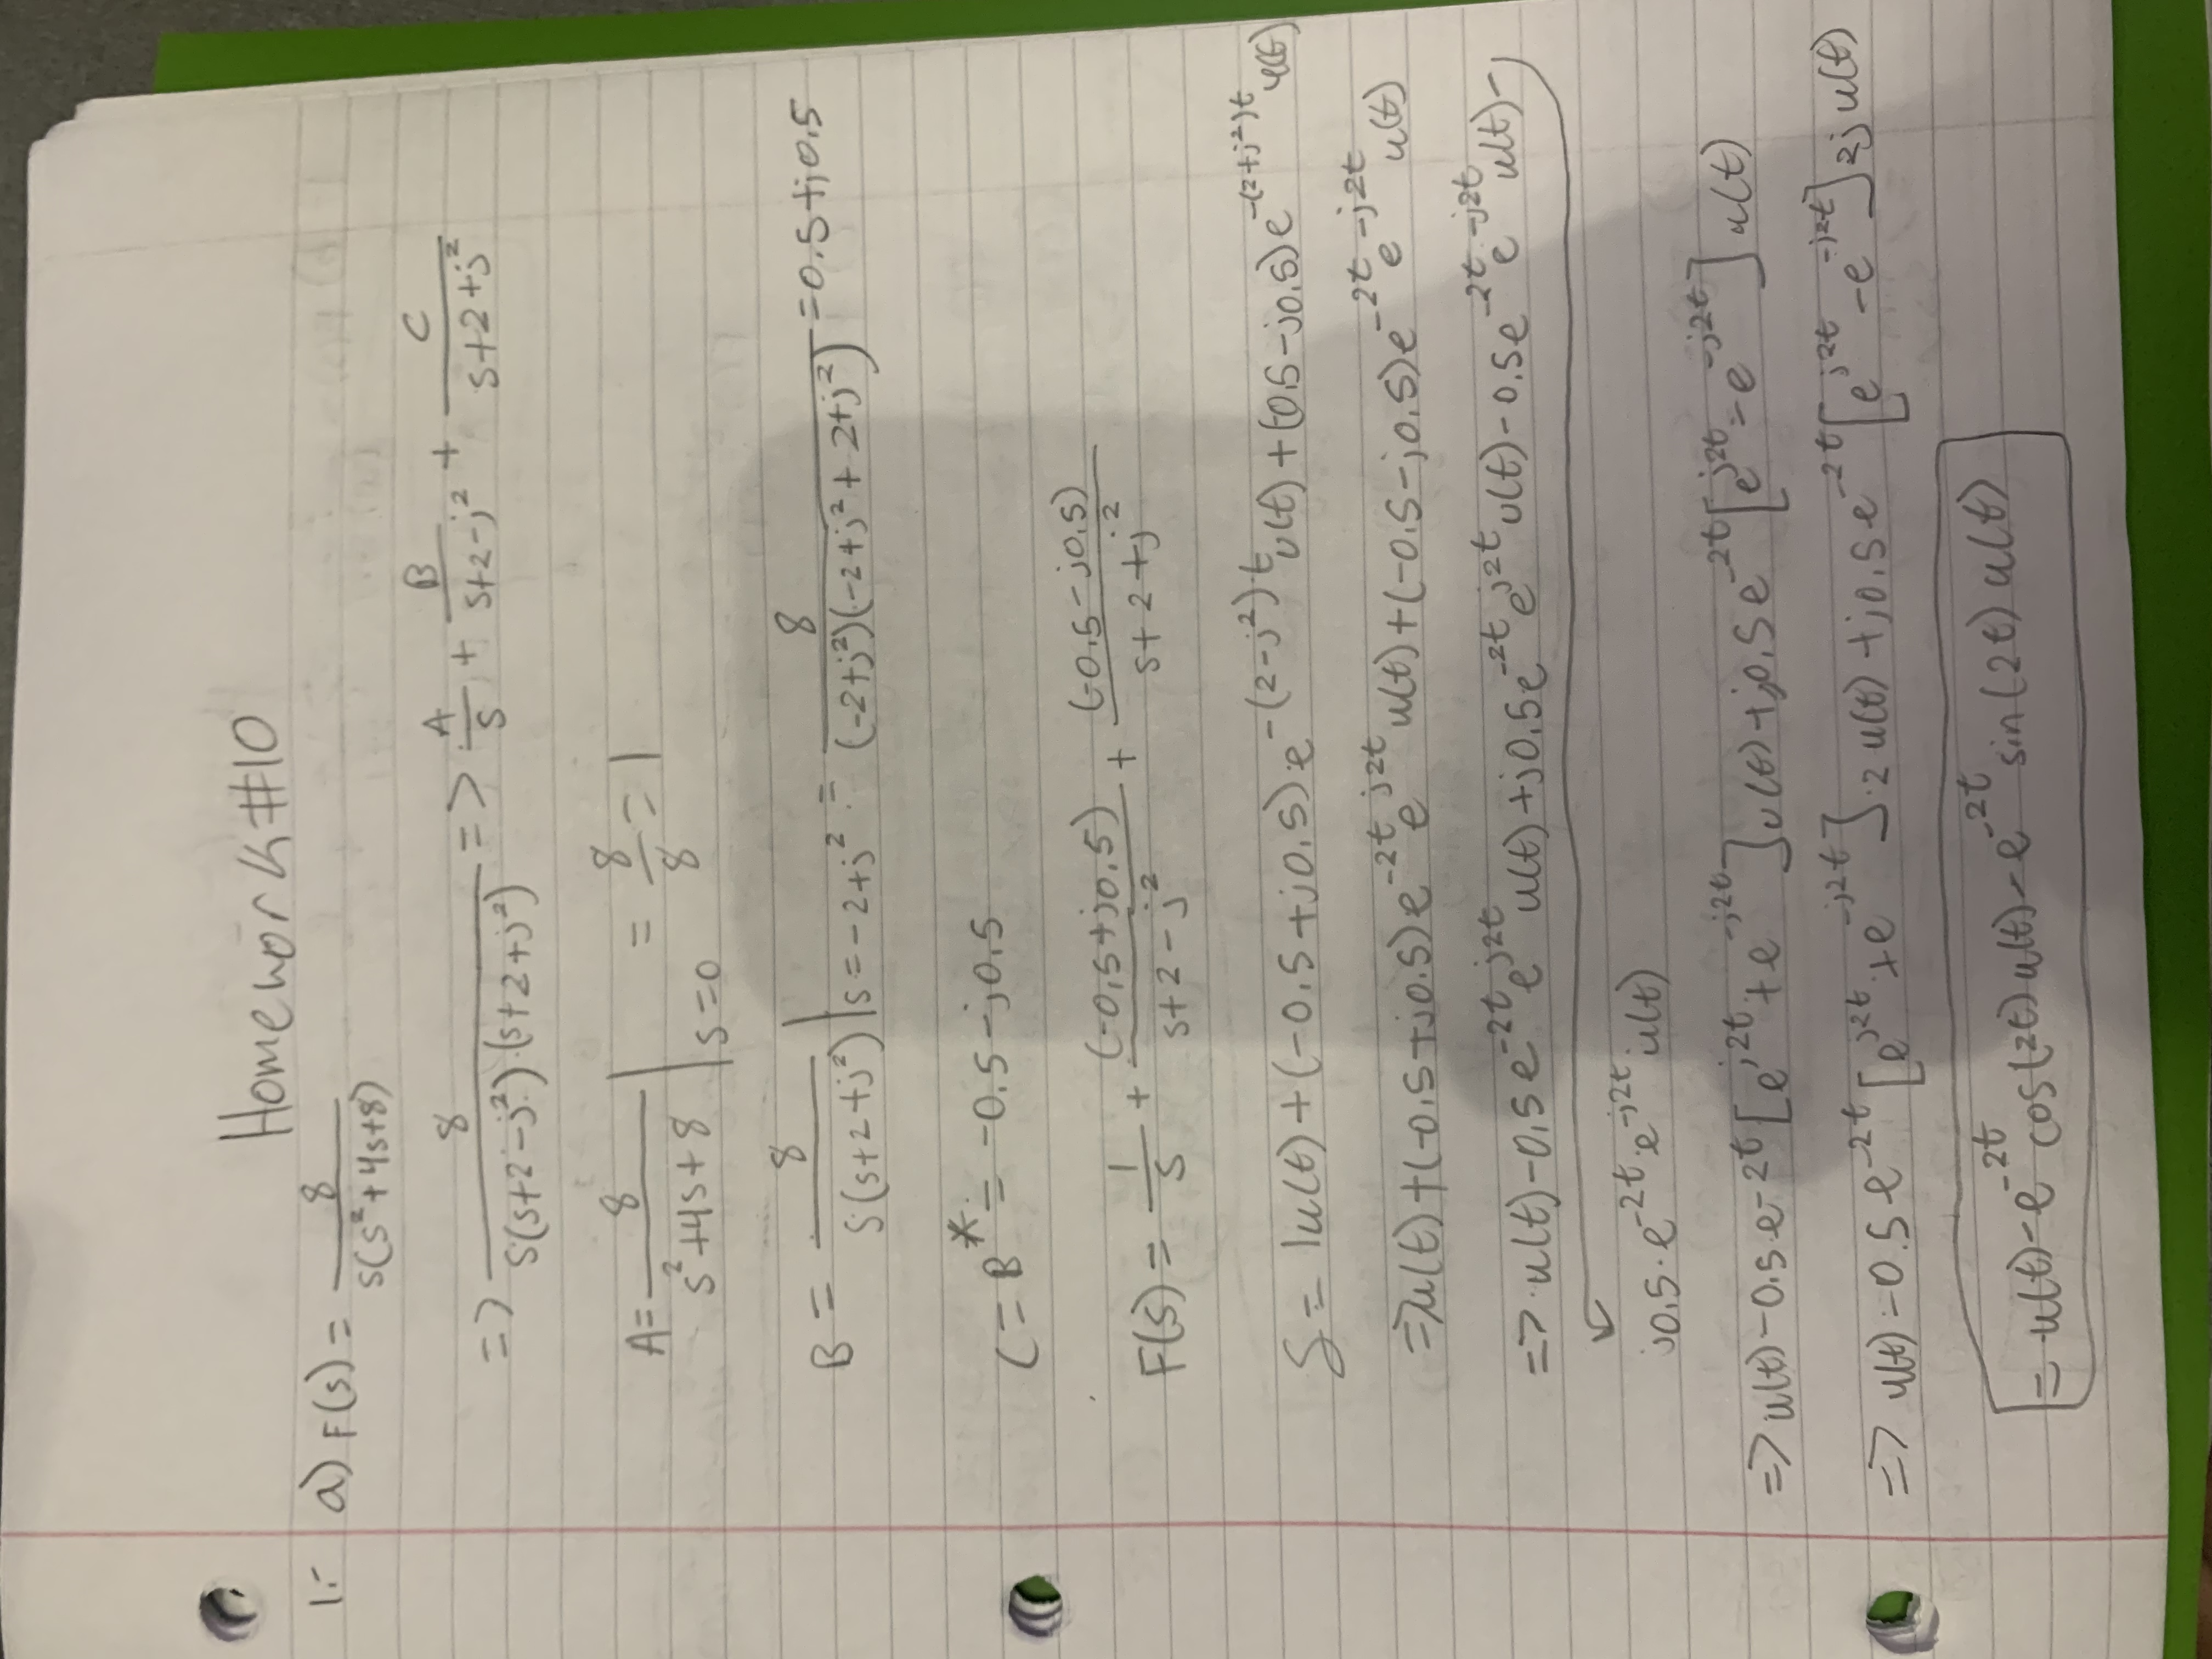 Homework #10
1.- a) F(s) = 8 / s(s²+4s+8)
=> 8 / S(s+2-j²)·(s+2+j²) => A/s + B/s+2-j² + C/s+2+j²
A = 8 / s²+4s+8 | s=0 = 8/8 = 1
B = 8 / S(s+2+j²) | s=-2+j² = 8 / (-2+j²)(-2+j²+2+j²) = 0.5+j0.5
C = B* = -0.5-j0.5
F(s) = 1/s + (-0.5+j0.5) / s+2-j² + (-0.5-j0.5) / s+2+j²
f = 1u(t)+(-0.5+j0.5)·e^-(2-j²)·t u(t)+(-0.5-j0.5)e^-(2+j²)t u(t)
=> u(t)+(-0.5+j0.5)e^-2t e^j2t u(t)+(-0.5-j0.5)e^-2t e^-j2t u(t)
=> u(t)-0.5e^-2t e^j2t u(t)+j0.5e^-2t e^j2t u(t)-0.5e^-2t e^-j2t u(t)-
j0.5·e^-2t·e^-j2t·u(t)
=> u(t)-0.5e^-2t[e^j2t+e^-j2t]u(t)+j0.5e^-2t[e^j2t-e^-j2t]u(t)
=> u(t)-0.5e^-2t[e^j2t+e^-j2t]·2u(t)+j0.5e^-2t[e^j2t-e^-j2t]2j u(t)
= u(t)-e^-2t cos(2t)u(t)-e^-2t sin(2t)u(t)